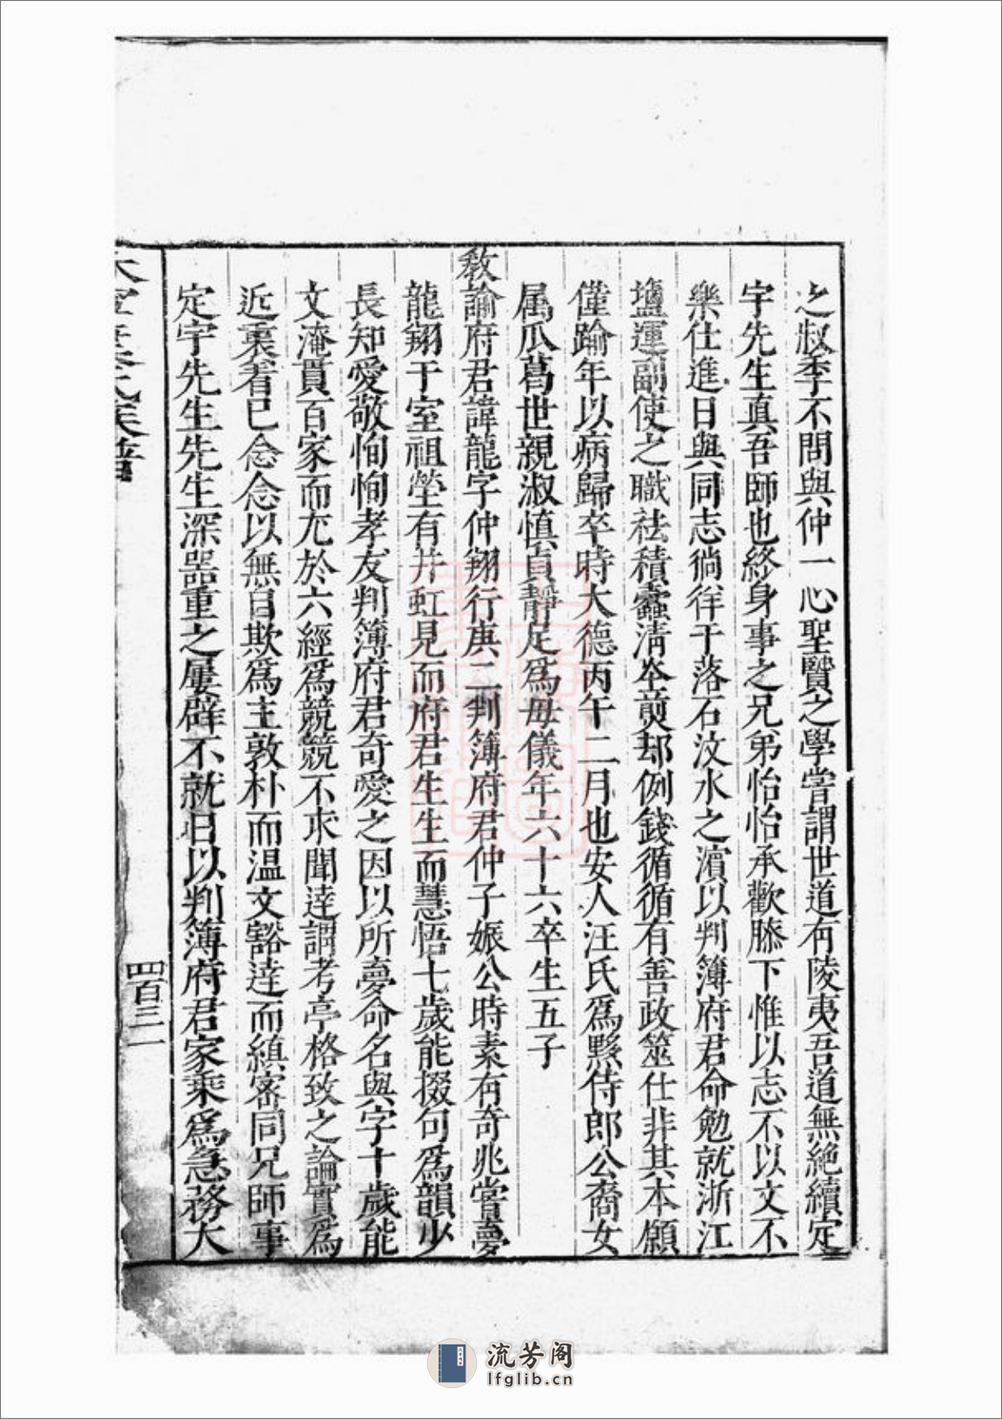 之叔季不問與仲一心聖賢之學嘗謂世道有陵夷吾道無絶續定
宇先生真吾師也終身事之兄弟怡怡承歡膝下惟以志不以文不
樂仕進日與同志徜徉于落石汶水之濵以判簿府君命勉就浙江
鹽運副使之職祛積蠹清夲䓇却例錢循循有善政筮仕非其本願
僅踰年以病歸卒時大德丙午二月也安人汪氏爲黟侍郎公裔女
属瓜葛世親淑慎貞靜足爲母儀年六十六卒生五子
教諭府君諱龍字仲翔行庚二判簿府君仲子娠公時素有奇兆嘗夢
龍翔于室祖塋有井虹見而府君生生而慧悟七歲能掇句爲韻少
長知愛敬恂恂孝友判簿府君奇愛之因以所夢命名與字十歲能
文淹貫百家而尤於六經爲競競不求聞逹謂考亭格致之論實爲
近裏着已念念以無自欺爲主敦朴而温文豁逹而縝宻同兄師事
定宇先生先生深噐重之屢辟不就日以判簿府君家乘爲急務大
族譜
四百三二
流芳阁
lfglib.cn